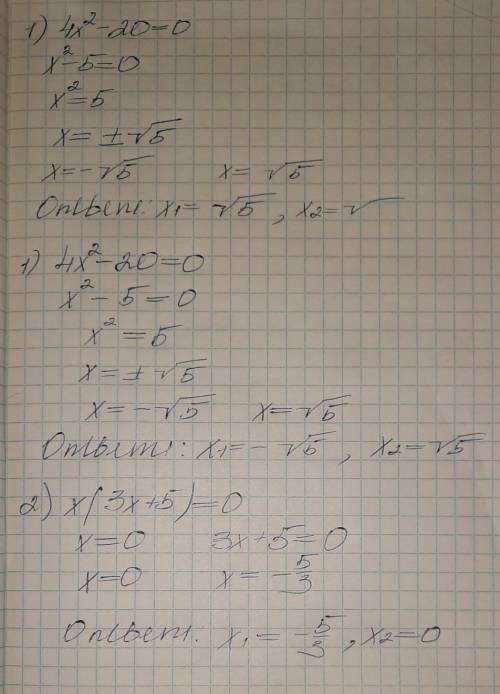 1) 4x²-20=0
x²-5=0
x²=5
x=±√5
x=-√5 x=√5
Ответ: x₁=√5, x₂=√
1) 4x²-20=0
x²-5=0
x²=5
x=±√5
x=-√5 x=√5
Ответ: x₁=-√5, x₂=√5
2) x(3x+5)=0
x=0 3x+5=0
x=0 x=-5/3
Ответ: x₁=-5/3, x₂=0